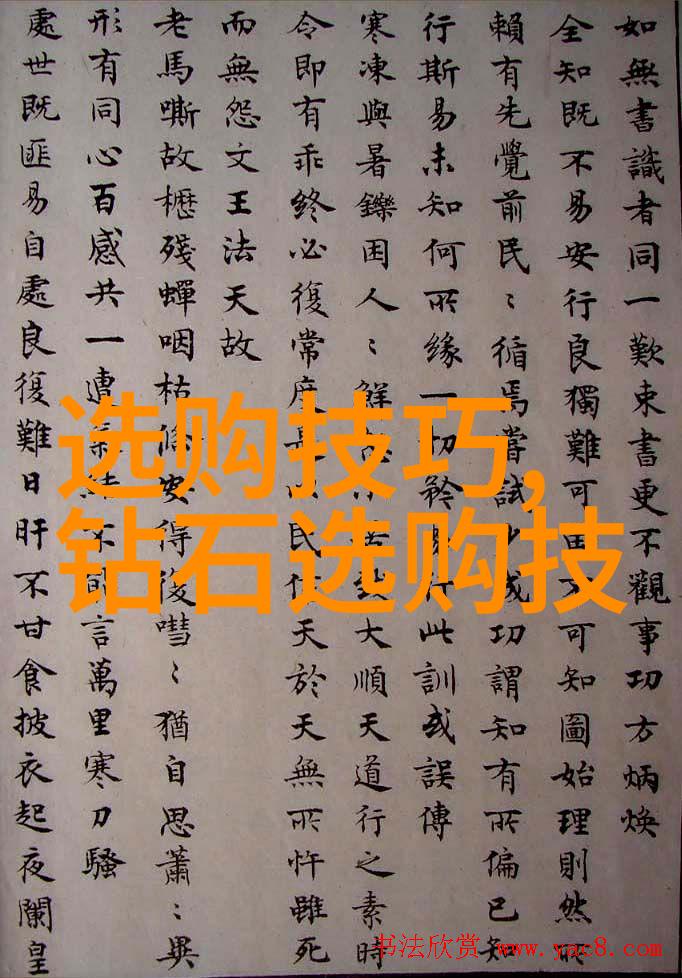 如無書識者同一歎束書更不觀事功方炳煥
全知既不易安行良獨難可由不可知圖始理則然所
賴有先覺前民〻循焉嘗試少成功謂知有所偏已知
行斯易未知何所緣一切矜易行此訓或誤傳
寒凍與暑鑠困人〻鮮大順天道行之素時
令即有乖終必復常度民信天於天無所忤雖死
而無怨文王法天故
老馬嘶故櫪殘蟬咽枯條安得後嘒〻猶自思蕭〻異
形有同心百感共一遭氣結不可言萬里寒刀騷
處世既匪易自處良復難日旰不甘食披衣起夜闌皇
选购技巧,
钻石选购技
书法欣赏 www.yac8.com